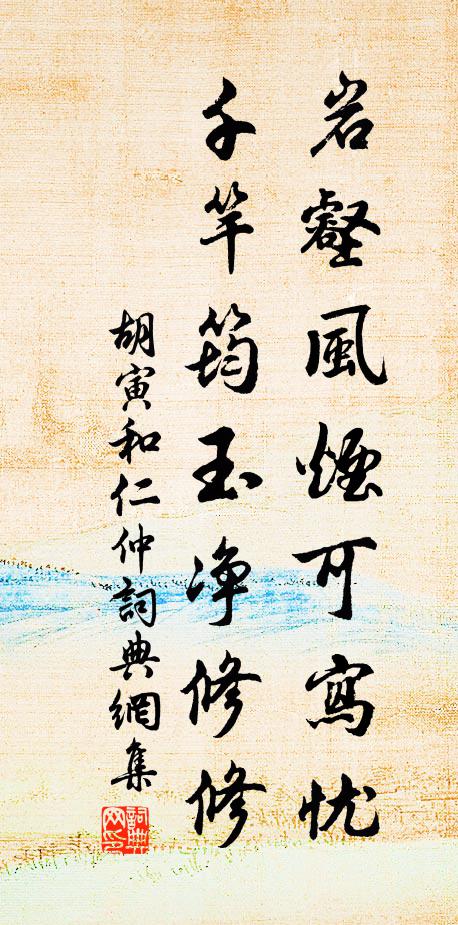 岩壑風煙可寫忧
千竿筠玉净修修
胡寅和仁仲詞典網集
詞典网印